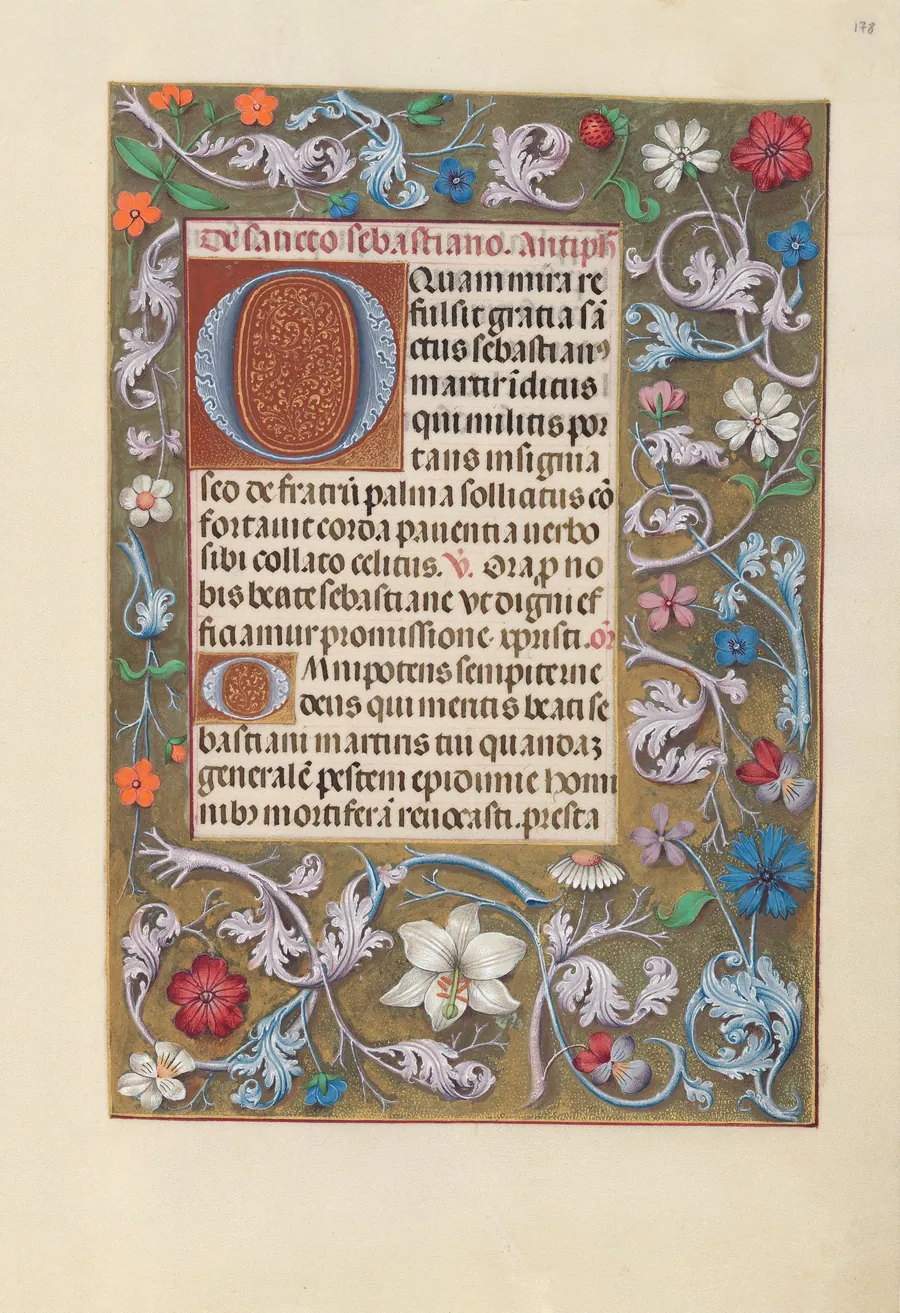 178
De sancto sebastiano. Antiph̄
O Quam mira re
fulsit gratia sā
ctus sebastianꝰ
martir īclitus
qui militis por
tans insignia
sed de fratrū palma sollicitus cō
fortauit corda pauentia uerbo
sibi collato celitus. V̄. Ora ꝓ no
bis beate sebastiane vt digni ef
ficiamur promissione xpristi. or̄
OMnipotens sempiterne
deus qui meritis beati se
bastiani martiris tui quandaꝫ
generalē pestem epidimie homi
nibꝫ mortiferā reuocasti. presta